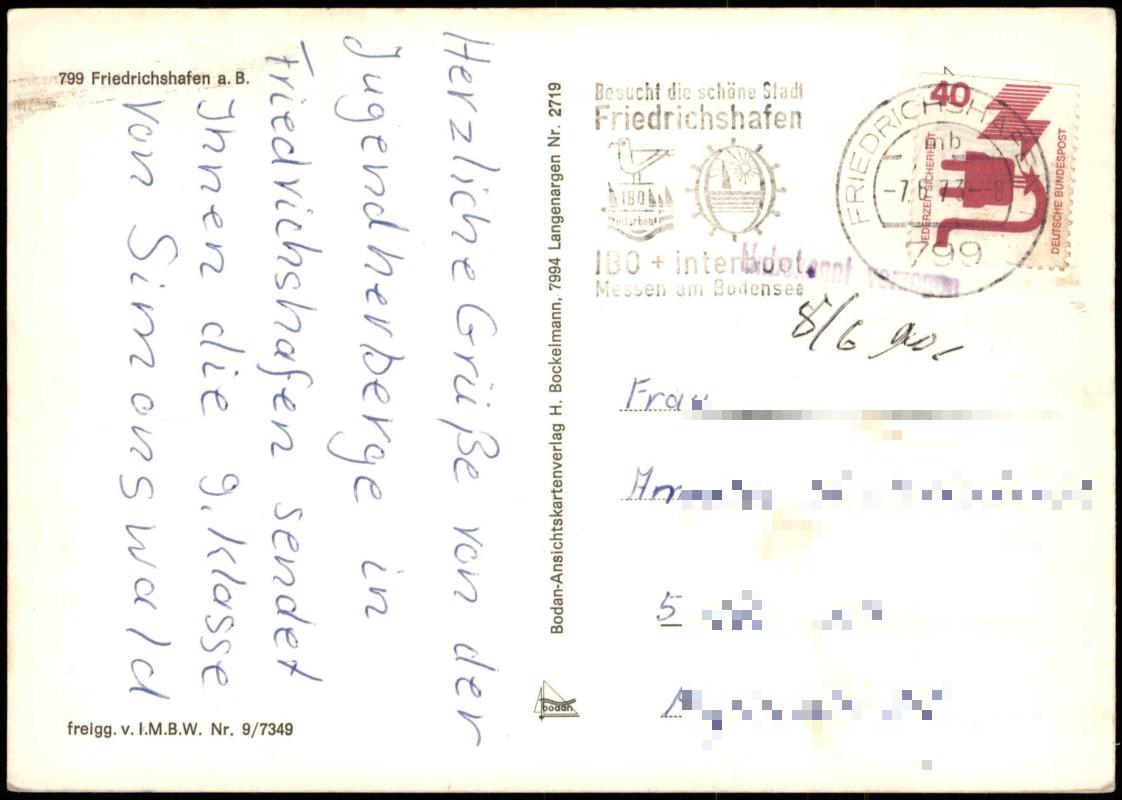 799 Friedrichshafen a. B.
Herzliche Grüße von der
Jugendherberge in
Friedrichshafen sendet
Ihnen die 9. Klasse
von Simonswald
freigg. v. I.M.B.W. Nr. 9/7349
Bodan-Ansichtskartenverlag H. Bockelmann, 7994 Langenargen Nr. 2719
bodan
Besucht die schöne Stadt
Friedrichshafen
IBO
interboot
IBO + interboot
Messen am Bodensee
FRIEDRICHSHAFEN
mb
799
40
JEDERZEIT SICHERHEIT
DEUTSCHE BUNDESPOST
Unbekannt verzogen
8/6
Frau
5